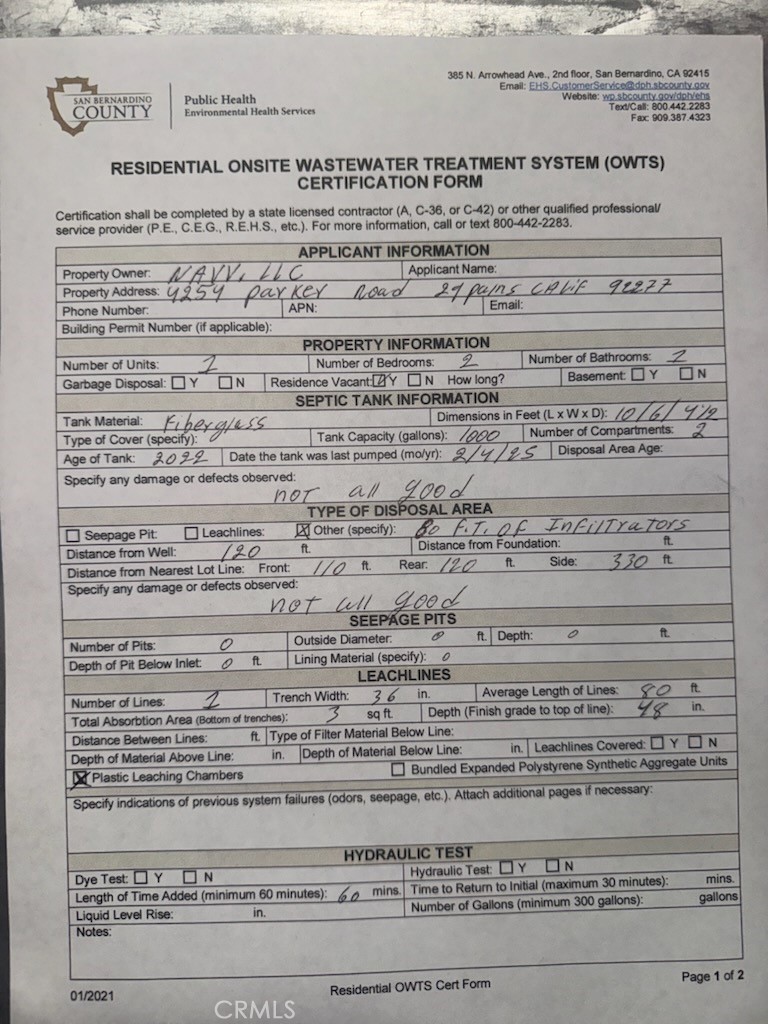 385 N. Arrowhead Ave., 2nd floor, San Bernardino, CA 92415
Email: EHS.CustomerService@dph.sbcounty.gov
Website: wp.sbcounty.gov/dph/ehs
Text/Call: 800.442.2283
Fax: 909.387.4323
SAN BERNARDINO
COUNTY
Public Health
Environmental Health Services
RESIDENTIAL ONSITE WASTEWATER TREATMENT SYSTEM (OWTS)
CERTIFICATION FORM
Certification shall be completed by a state licensed contractor (A, C-36, or C-42) or other qualified professional/
service provider (P.E., C.E.G., R.E.H.S., etc.). For more information, call or text 800-442-2283.
APPLICANT INFORMATION
Property Owner: NAVV, LLC Applicant Name:
Property Address: 4254 parker Road 29 palms CALIF 92277
Phone Number: APN: Email:
Building Permit Number (if applicable):
PROPERTY INFORMATION
Number of Units: 1 Number of Bedrooms: 2 Number of Bathrooms: 2
Garbage Disposal: ☐ Y ☐ N Residence Vacant: ☑ Y ☐ N How long? Basement: ☐ Y ☐ N
SEPTIC TANK INFORMATION
Tank Material: Fiberglass Dimensions in Feet (L x W x D): 10/6/4 1/2
Type of Cover (specify): Tank Capacity (gallons): 1000 Number of Compartments: 2
Age of Tank: 2022 Date the tank was last pumped (mo/yr): 2/4/25 Disposal Area Age:
Specify any damage or defects observed:
not all good
TYPE OF DISPOSAL AREA
☐ Seepage Pit: ☐ Leachlines: ☒ Other (specify): 80 F.T. OF INFILTRATORS
Distance from Well: 120 ft. Distance from Foundation: ft.
Distance from Nearest Lot Line: Front: 110 ft. Rear: 120 ft. Side: 330 ft.
Specify any damage or defects observed:
not all good
SEEPAGE PITS
Number of Pits: 0 Outside Diameter: 0 ft. Depth: 0 ft.
Depth of Pit Below Inlet: 0 ft. Lining Material (specify): 0
LEACHLINES
Number of Lines: 1 Trench Width: 36 in. Average Length of Lines: 80 ft.
Total Absorbtion Area (Bottom of trenches): 3 sq ft. Depth (Finish grade to top of line): 48 in.
Distance Between Lines: ft. Type of Filter Material Below Line:
Depth of Material Above Line: in. Depth of Material Below Line: in. Leachlines Covered: ☐ Y ☐ N
☒ Plastic Leaching Chambers ☐ Bundled Expanded Polystyrene Synthetic Aggregate Units
Specify indications of previous system failures (odors, seepage, etc.). Attach additional pages if necessary:
HYDRAULIC TEST
Dye Test: ☐ Y ☐ N Hydraulic Test: ☐ Y ☐ N
Length of Time Added (minimum 60 minutes): 60 mins. Time to Return to Initial (maximum 30 minutes): mins.
Liquid Level Rise: in. Number of Gallons (minimum 300 gallons): gallons
Notes:
01/2021 Residential OWTS Cert Form Page 1 of 2
CRMLS